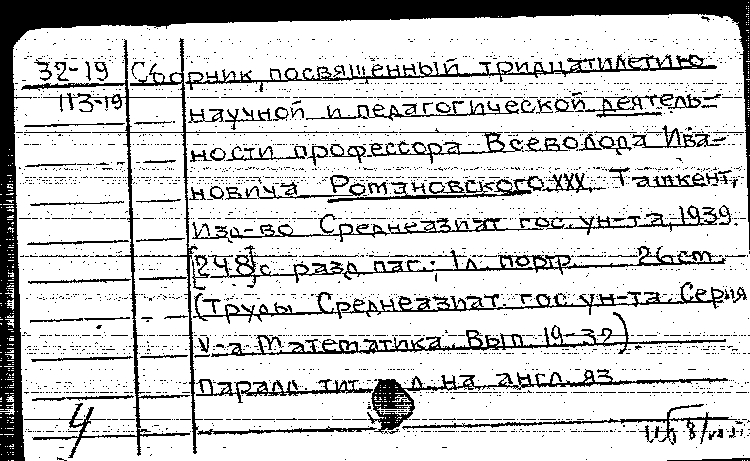 32-19 Сборник, посвященный тридцатилетию
113-19 научной и педагогической деятель-
ности профессора Всеволода Ива-
новича Романовского. XXX. Ташкент,
Изд-во Среднеазиат. гос. ун-та, 1939.
[248]с. разд. паг.; 1 л. портр. 26 cm.
(Труды Среднеазиат. гос. ун-та. Серия
V-а Математика. Вып. 19-32)
Паралл. тит. л. на англ. яз.
4